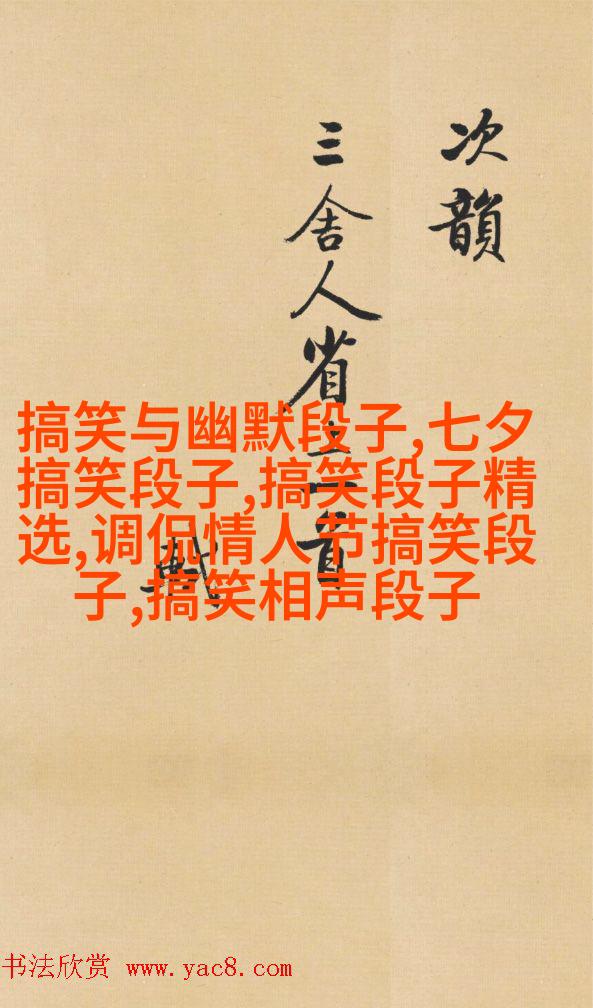 次韻
三舍人省上一首
軾
搞笑与幽默段子,七夕
搞笑段子,搞笑段子精
选,调侃情人节搞笑段
子,搞笑相声段子
书法欣赏 www.yac8.com